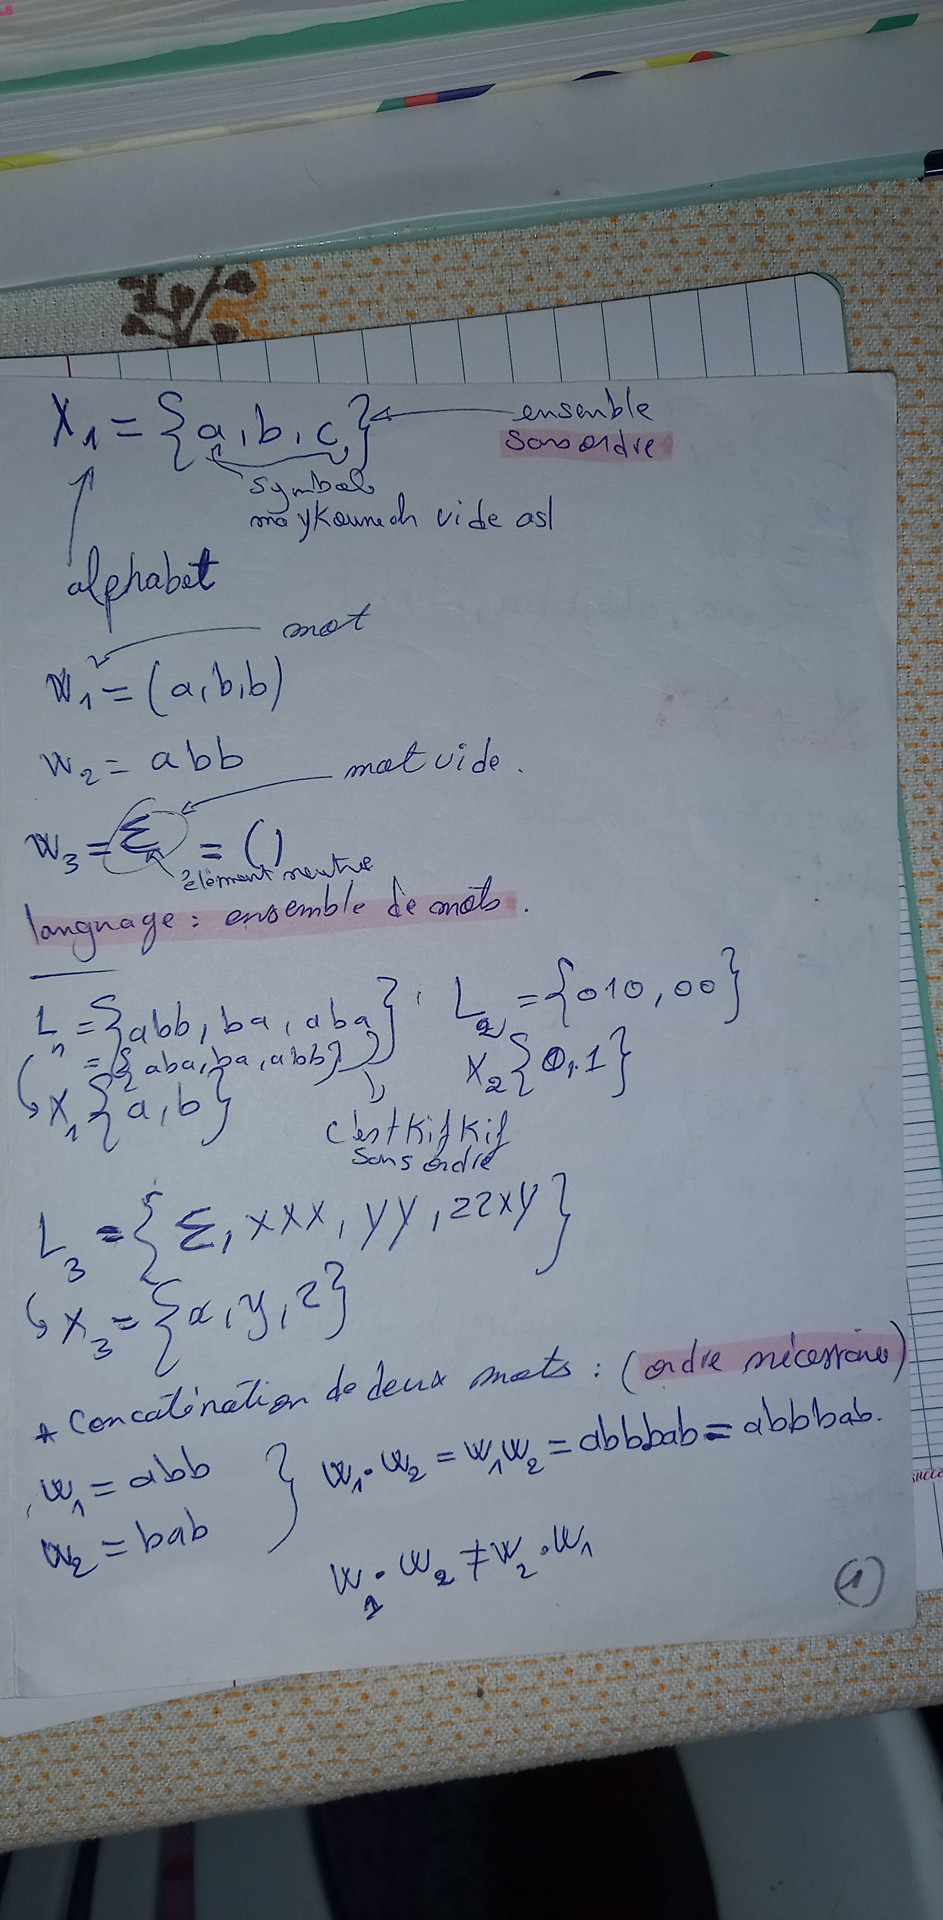 X₁ = {a, b, c} ← ensemble
sans ordre
symbols
maykounech vide asl
alphabet
mot
W₁ = (a, b, b)
W₂ = abb
mot vide.
W₃ = Σ = ()
élément neutre
language : ensemble de mots.
L₁ = {abb, ba, aba}, L₂ = {010, 00}
= {aba, ba, abb}
X₁ {a, b}
X₂ {0, 1}
c'est Kif Kif
sans ordre
L₃ = {Σ, xxx, yy, zzxy}
X₃ = {x, y, z}
* Concaténation de deux mots : (ordre nécessaire)
W₁ = abb
W₂ = bab
W₁ . W₂ = W₁W₂ = abbbab = abbbab.
W₁ . W₂ ≠ W₂ . W₁
1